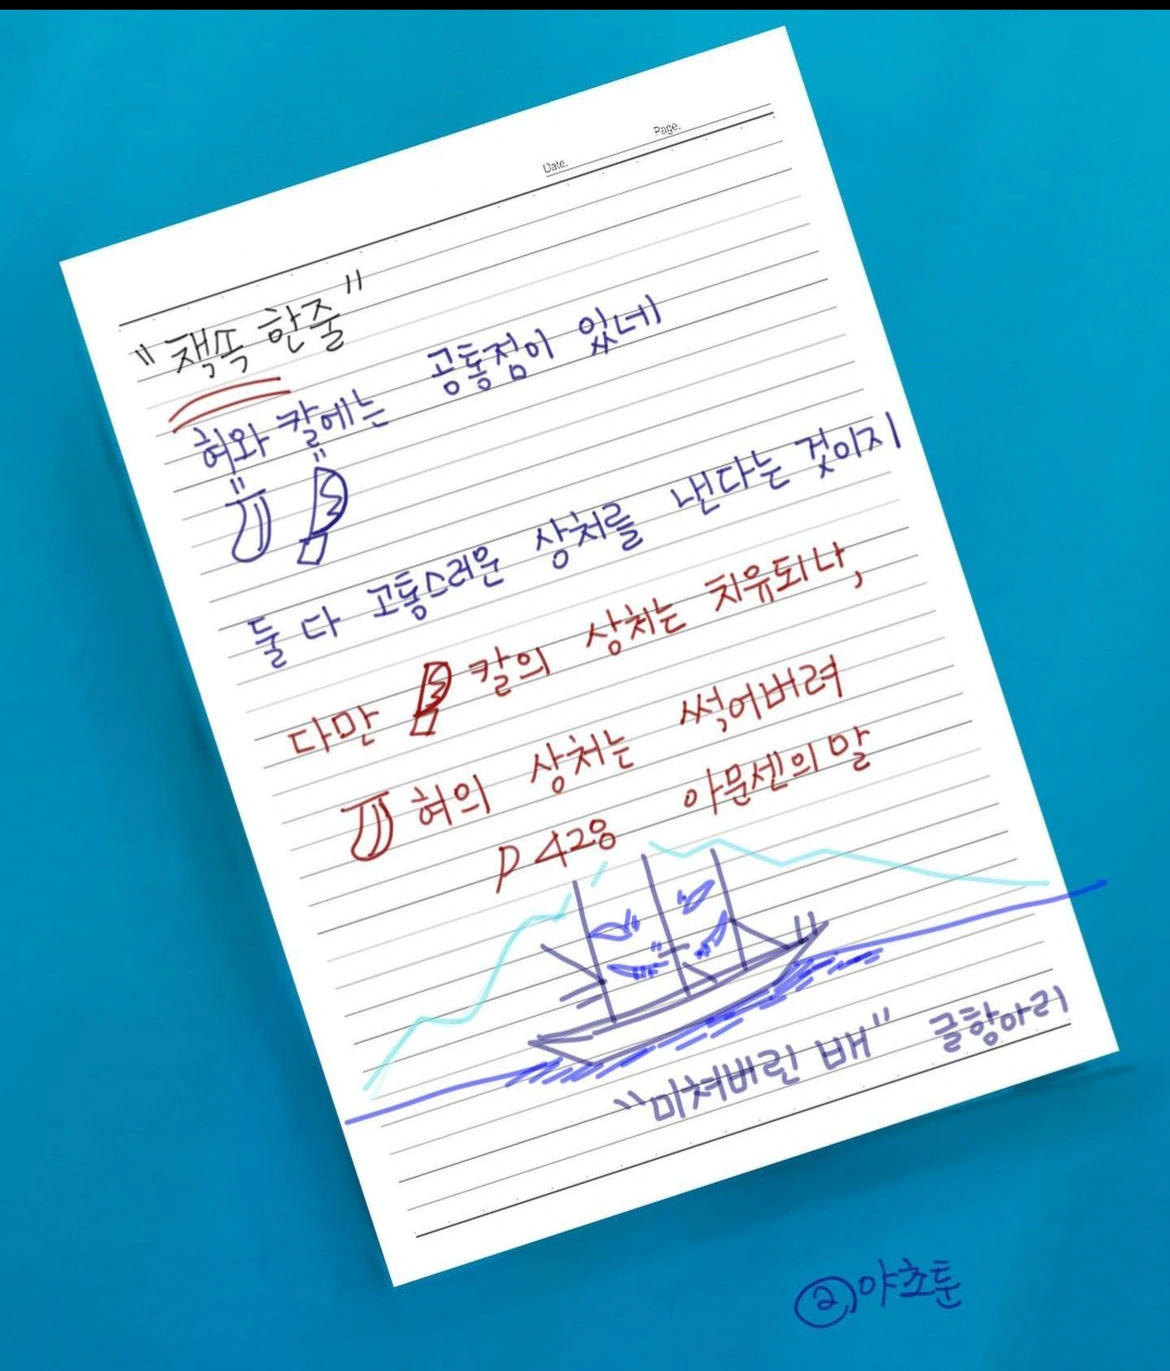 Page.
Date.
"책쏙 한줄"
혀와 칼에는 공통점이 있네
둘 다 고통스러운 상처를 낸다는 것이지
다만 칼의 상처는 치유되나,
혀의 상처는 썩어버려
P 428 아문센의 말
"미쳐버린 배" 글항아리
2 야초툰